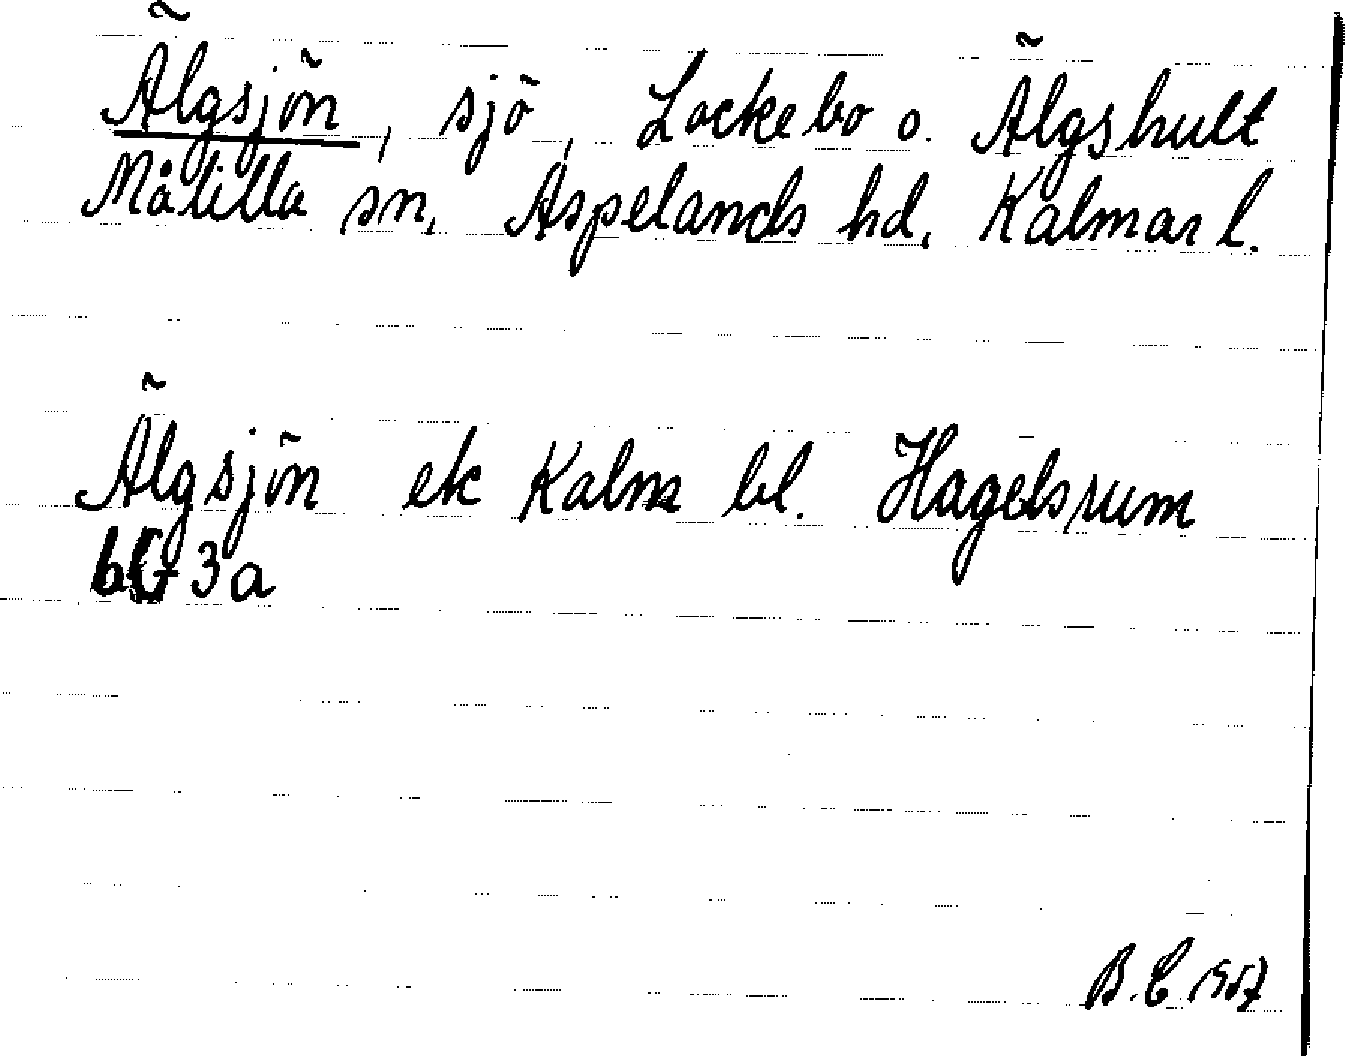 Älgsjön, sjö, Lockebo o. Älgshult
Målilla sn, Aspelands hd, Kalmar l.
Älgsjön ek Kalm bl. Hagelsrum
6G 3a
B. E 1957